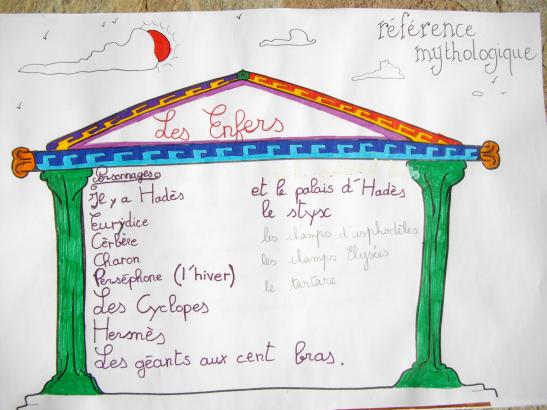 référence
mythologique
Les Enfers
Personnages
Il y a Hadès
Eurydice
Cèrbère
Charon
Perséphone (l'hiver)
Les Cyclopes
Hermès
Les géants aux cent bras.
et le palais d'Hadès
le styx
les champs d'asphodèles
les champs Elysées
le tartare